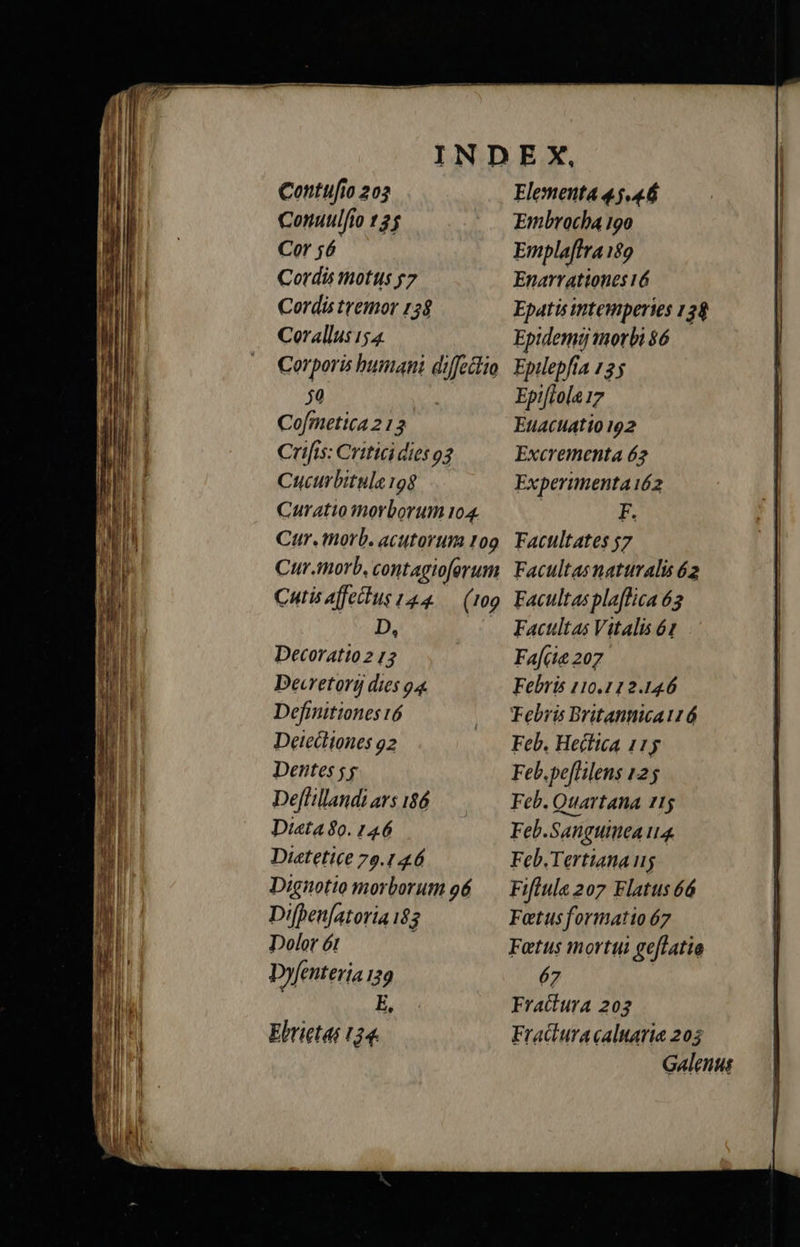 INDEX.
Contuſio 203
Conuulſio 135
Cor 56
Cordis motus 57
Cordis tremor 138
Corallus 154
Corporis humani diſſectio
50
Coſmetica 213
Criſis: Critici dies 93
Cucurbitulæ 198
Curatio morborum 104
Cur. morb. acutorum 109
Cur. morb. contagioſorum
Cutis affectus 144 (109
D.
Decoratio 213
Decretorij dies 94
Definitiones 16
Deiectiones 92
Dentes 55
Deſtillandi ars 186
Diæta 80. 146
Diætetice 79. 146
Dignotio morborum 96
Diſpenſatoria 183
Dolor 61
Dyſenteria 139
E.
Ebrietas 134
Elementa 45. 46
Embrocha 190
Emplaſtra 189
Enarrationes 16
Epatis intemperies 138
Epidemij morbi 86
Epilepſia 135
Epiſtolæ 17
Euacuatio 192
Excrementa 63
Experimenta 162
F.
Facultates 57
Facultas naturalis 62
Facultas plaſtica 63
Facultas Vitalis 61
Faſciæ 207
Febris 110. 112. 146
Febris Britannica 116
Feb. Hectica 115
Feb. peſtilens 125
Feb. Quartana 115
Feb. Sanguinea 114
Feb. Tertiana 115
Fiſtulæ 207 Flatus 66
Fœtus formatio 67
Fœtus mortui geſtatio
67
Fractura 203
Fractura caluariæ 205
Galenus